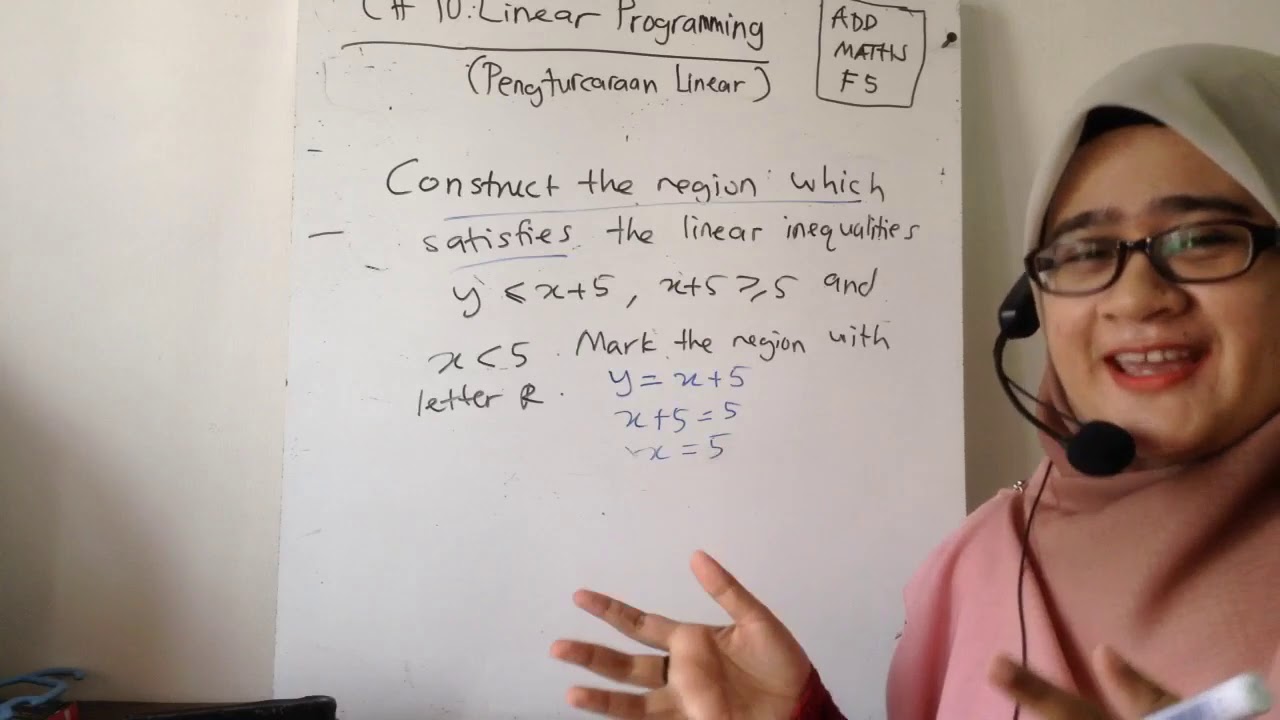 CH 10: Linear Programming
(Pengturcaraan Linear)
ADD
MATHS
F5
Construct the region which
satisfies the linear inequalities
y ⩽ x+5, x+5 ⩾ 5 and
x < 5. Mark the region with
letter R.
y = x+5
x+5 = 5
x = 5